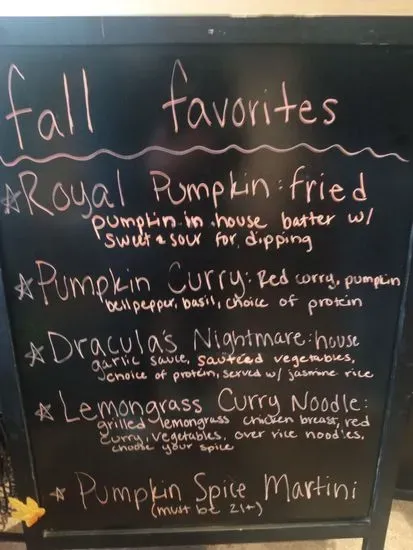 fall favorites
☆Royal Pumpkin: fried
pumpkin in house batter w/
sweet & sour for dipping
☆Pumpkin Curry: Red curry, pumpkin
bell pepper, basil, choice of protein
☆Dracula's Nightmare: house
garlic sauce, sauteed vegetables,
choice of protein, served w/ jasmine rice
☆Lemongrass Curry Noodle:
grilled lemongrass chicken breast, red
curry, vegetables, over rice noodles,
choose your spice
☆Pumpkin Spice Martini
(must be 21+)